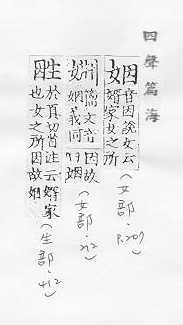 四聲篇海
姻
音因說文云
婿家女之所
因故
曰姻
(女部·P.207)
籀文音
姻義同
(女部·212)
於真切首注云婿家
也女之所因故姻
(生部·412)